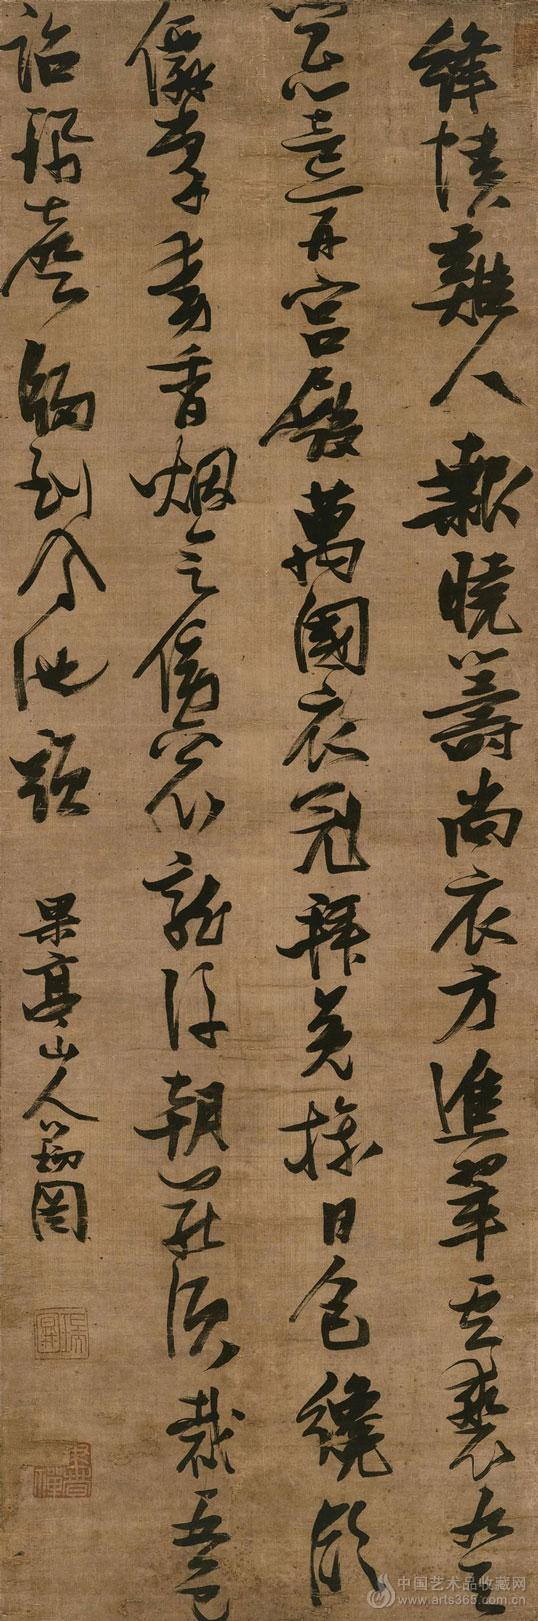 絳幘雞人報曉籌尚衣方進翠雲裘九天
閶闔開宮殿萬國衣冠拜冕旒日色纔臨
僊掌動香烟欲傍袞龍浮朝罷須裁五色
詔珮聲歸到鳳池頭
果亭山人瑞圖
中国艺术品收藏网
www.arts365.com.cn